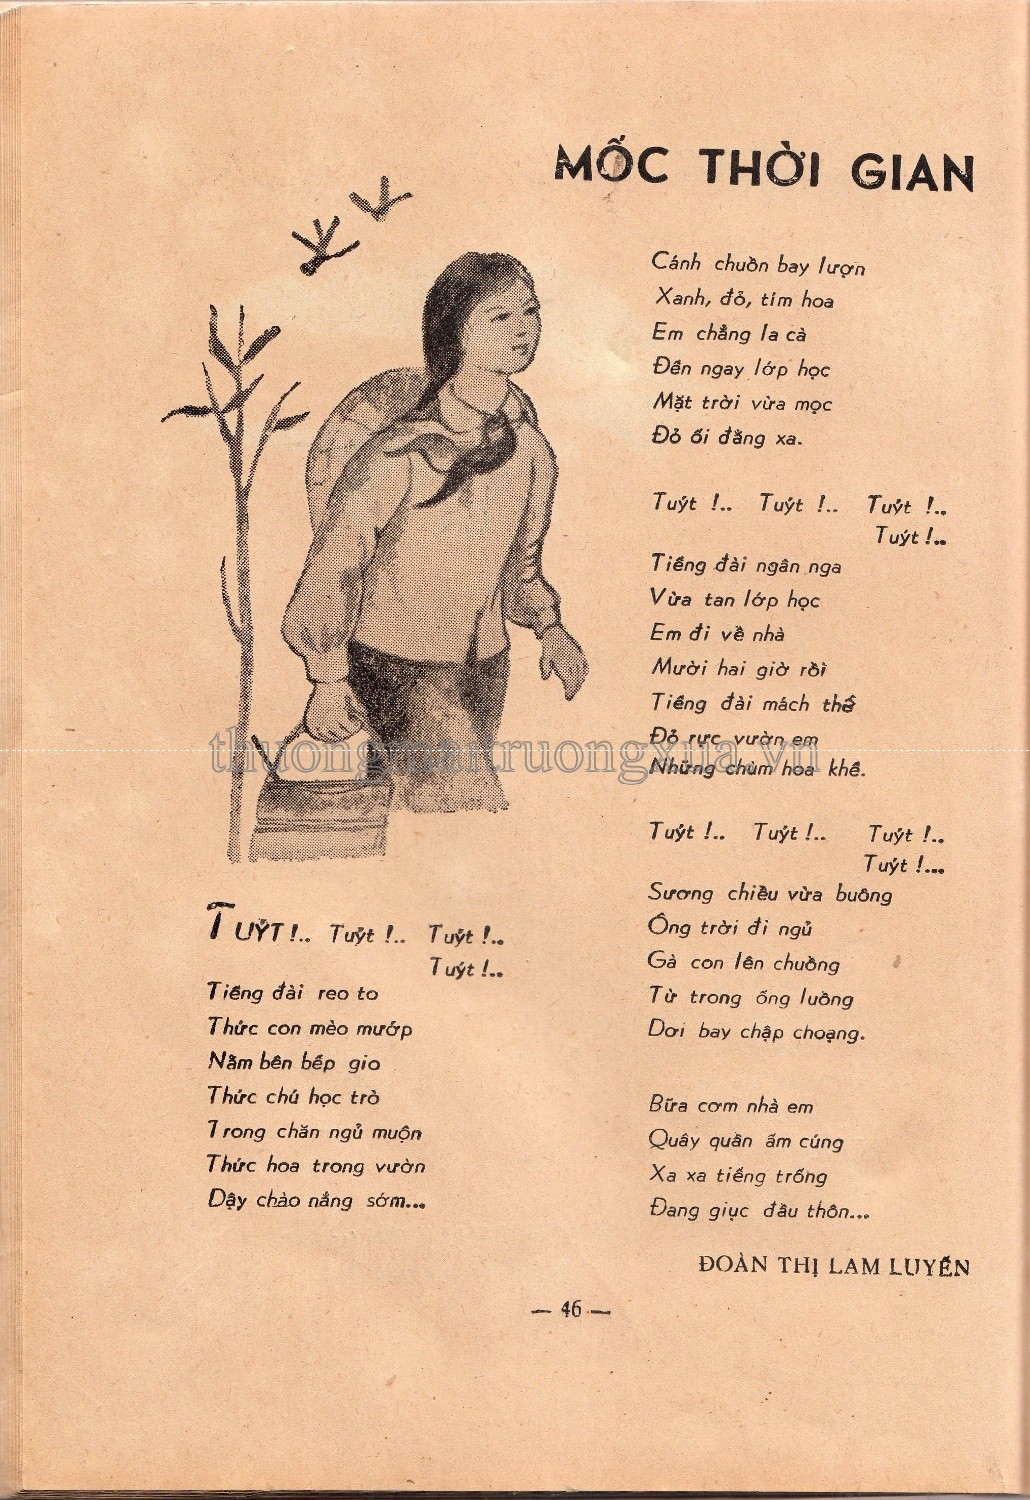 MỐC THỜI GIAN
TUÝT !.. Tuýt !.. Tuýt !..
Tuýt !..
Tiếng đài reo to
Thức con mèo mướp
Nằm bên bếp gio
Thức chú học trò
Trong chăn ngủ muộn
Thức hoa trong vườn
Dậy chào nắng sớm...
Cánh chuồn bay lượn
Xanh, đỏ, tím hoa
Em chẳng la cà
Đến ngay lớp học
Mặt trời vừa mọc
Đỏ ối đằng xa.
Tuýt !.. Tuýt !.. Tuýt !..
Tuýt !..
Tiếng đài ngân nga
Vừa tan lớp học
Em đi về nhà
Mười hai giờ rồi
Tiếng đài mách thế
Đỏ rực vườn em
Những chùm hoa khế.
Tuýt !.. Tuýt !.. Tuýt !..
Tuýt !...
Sương chiều vừa buông
Ông trời đi ngủ
Gà con lên chuồng
Từ trong ống luồng
Dơi bay chập choạng.
Bữa cơm nhà em
Quây quần ấm cúng
Xa xa tiếng trống
Đang giục đầu thôn...
ĐOÀN THỊ LAM LUYẾN
— 46 —
thuongmaitruongxua.vn